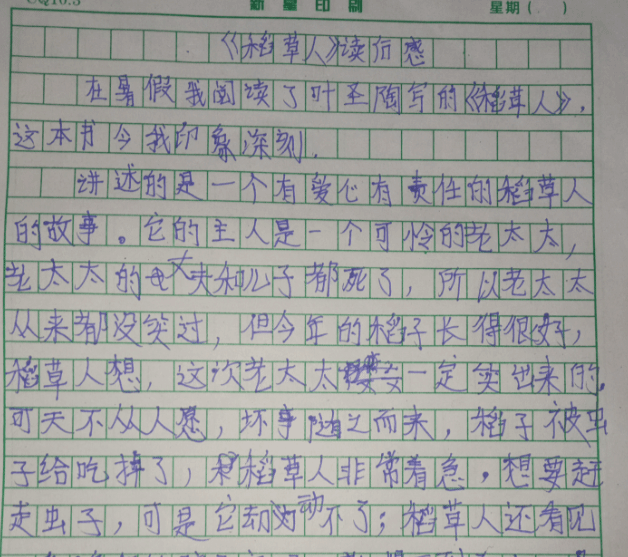 新星印刷 星期( )
《稻草人》读后感
在暑假我阅读了叶圣陶写的《稻草人》,
这本书令我印象深刻.
讲述的是一个有爱心有责任的稻草人
的故事。它的主人是一个可怜的老太太,
老太太的丈夫和儿子都死了,所以老太太
从来都没笑过,但今年的稻子长得很好,
稻草人想,这次老太太一定笑出来的.
可天不从人愿,坏事随之而来,稻子被虫
子给吃掉了,稻草人非常着急,想要赶
走虫子,可是它却动不了;稻草人还看见